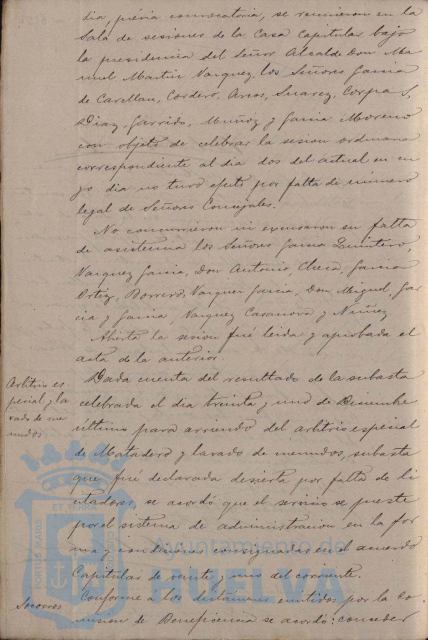 dia, prévia convocatoria, se reunieron en la
Sala de sesiones de la Casa Capitular bajo
la presidencia del Señor Alcalde Don Ma
nuel Martin Vazquez, los Señores Garcia
de Carellan, Cordero, Arcos, Suarez, Corpas,
Diaz, Garrido, Muñoz y Garcia Moreno
con objeto de celebrar la sesion ordinaria
correspondiente al dia dos del actual en cu
yo dia no tuvo efecto por falta de número
legal de Señores Concejales.
No concurrieron ni excusaron su falta
de asistencia los Señores Garcia Quintero,
Vazquez Garcia, Don Antonio, Checa, Garcia
Ortiz, Borrero, Vazquez Garcia, Don Miguel, Gar
cia y Garcia, Vazquez Casanova y Nuñez
Abierta la sesion fué leida y aprobada el
acta de la anterior.
Arbitrio es
pecial y la
vado de me
nudos
Dada cuenta del resultado de la subasta
celebrada el dia treinta y uno de Diciembre
último para arriendo del arbitrio especial
de Matadero y lavado de menudos, subasta
que fué declarada desierta por falta de li
citadores, se acordó que el servicio se preste
por el sistema de administracion en la for
ma y condiciones consignadas en el acuerdo
Capitular de veinte y uno del corriente.
Socorros
Conforme a los dictámenes emitidos por la Co
mision de Beneficencia se acordó: conceder
PORTUS MARIS ET
Ayuntamiento de
HUELVA